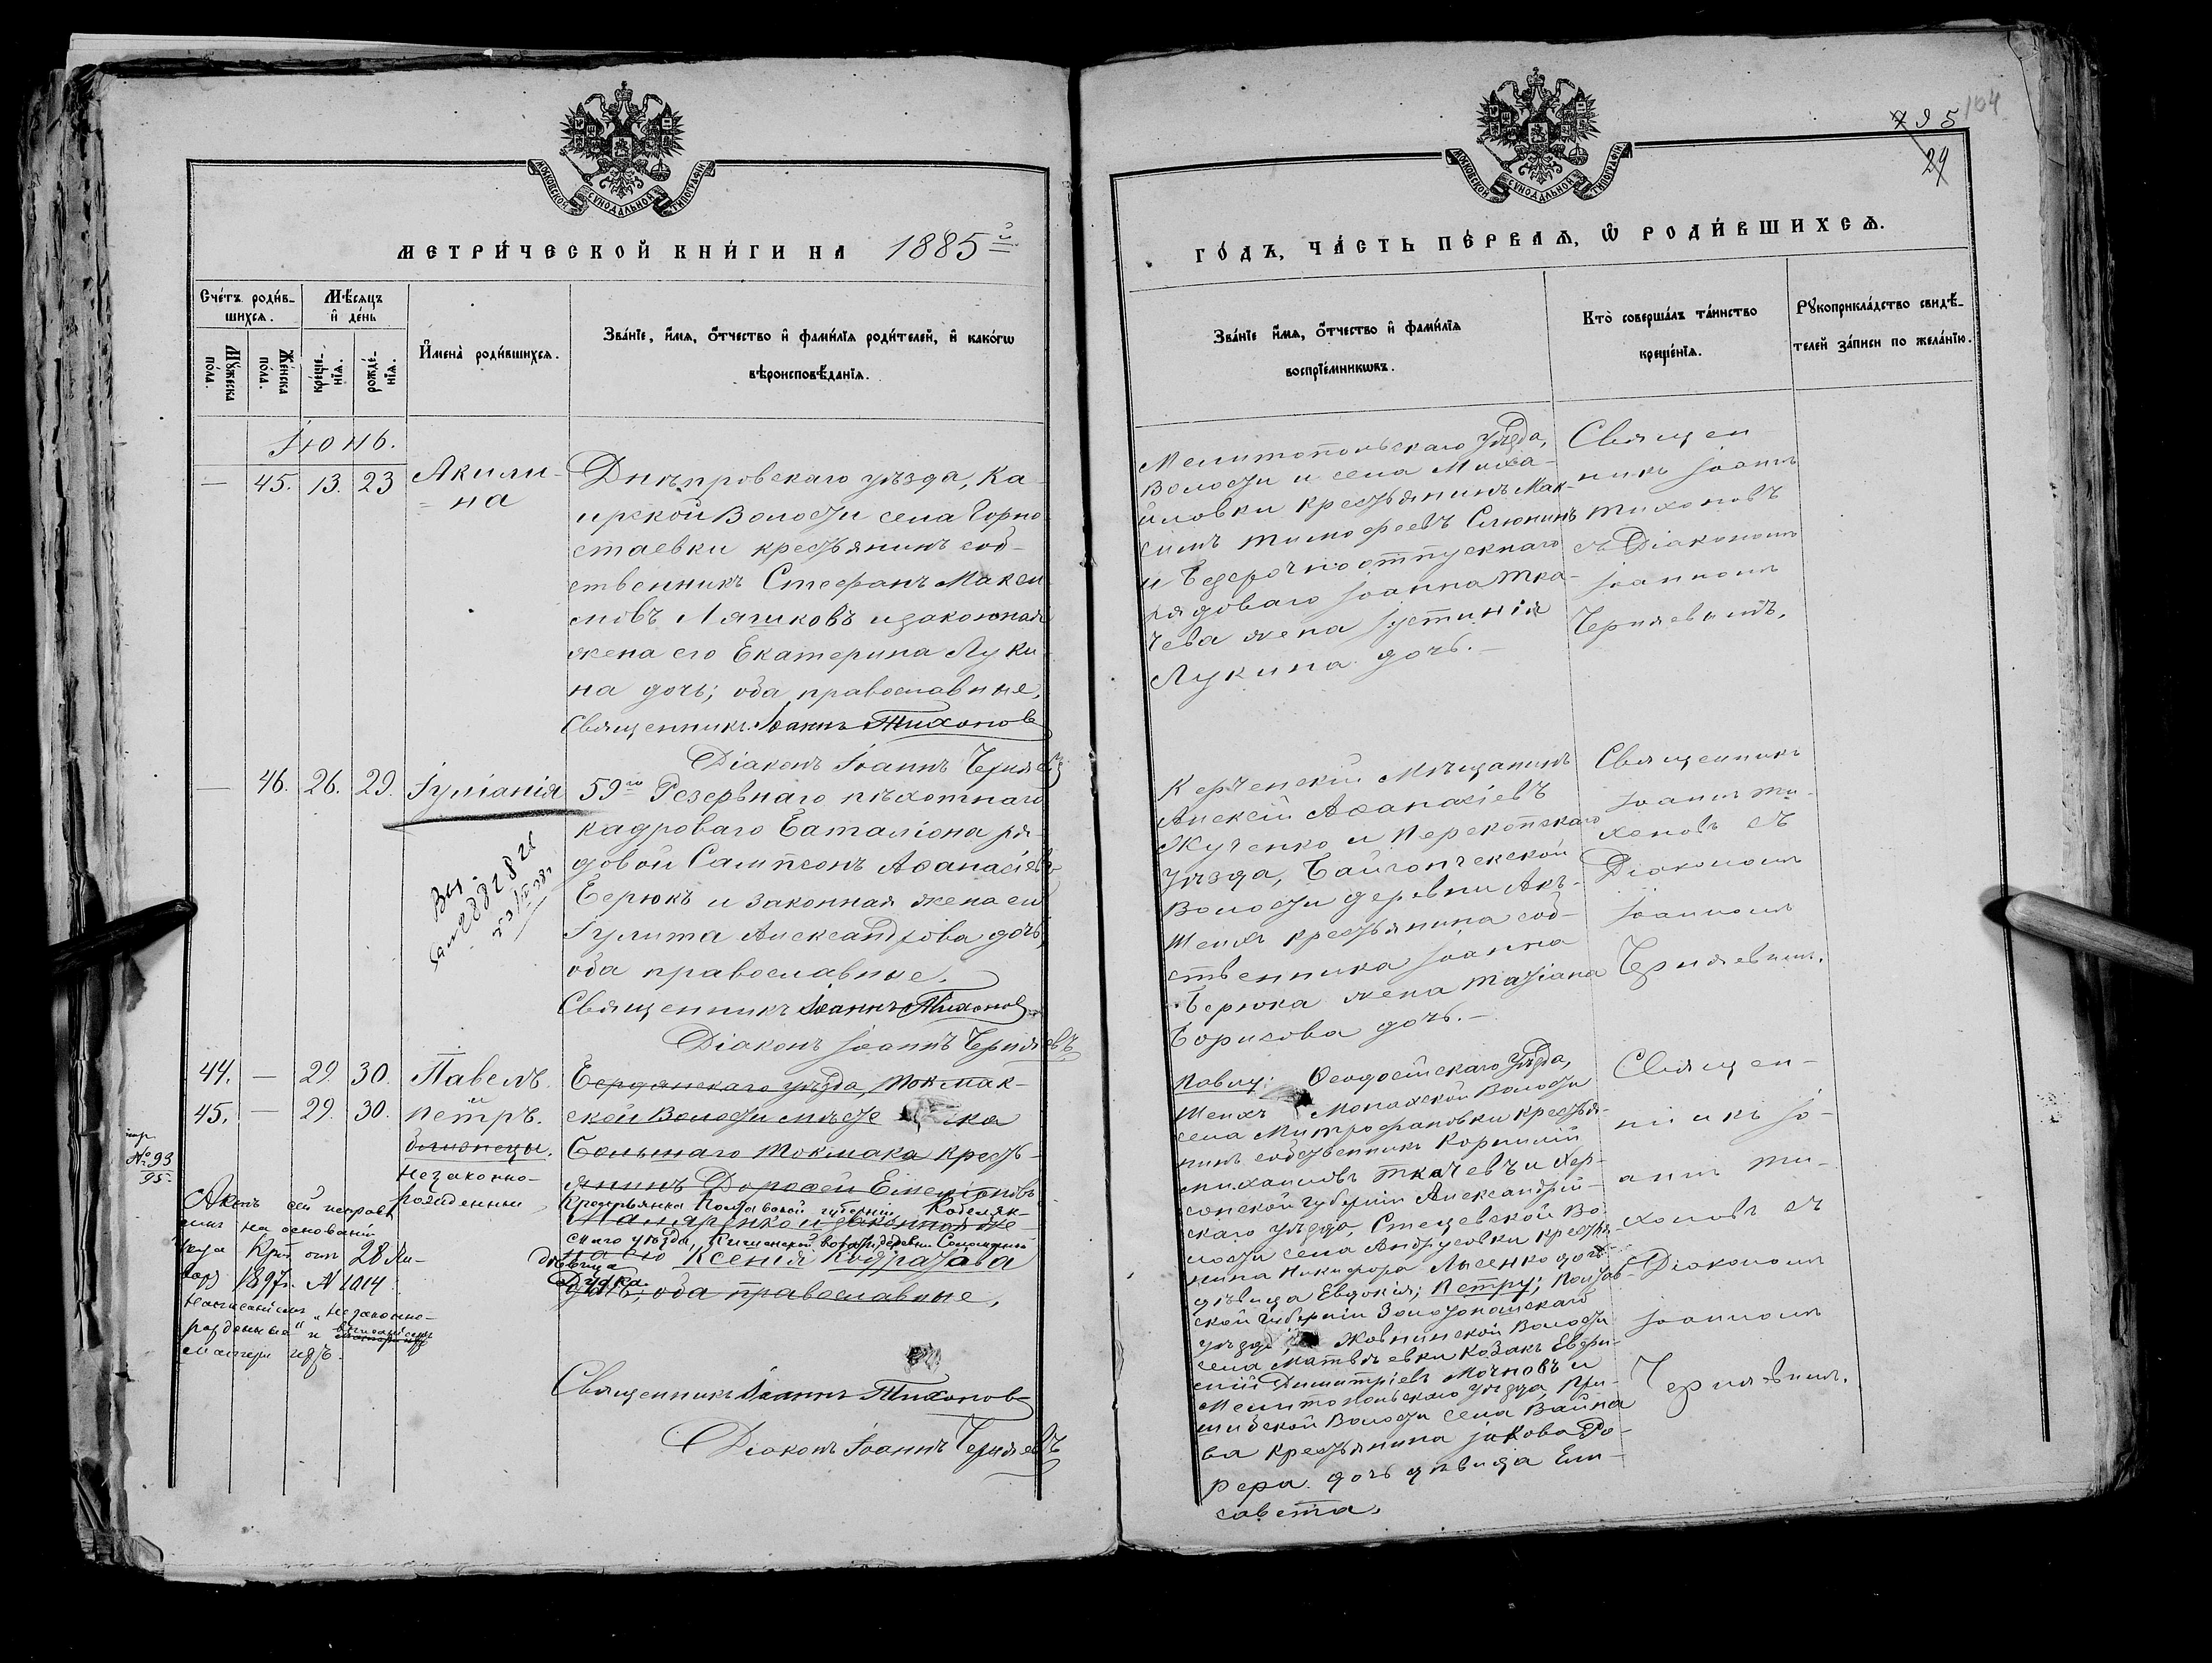 МОСКОВСКОЙ СѴНОДАЛЬНОЙ ТИПОГРАФІИ
МЕТРИ́ЧЕСКОЙ КНИ́ГИ НА 1885 й
Сче́тъ роди́в-
шихсѧ.
Мѣ́сѧцъ
и҆ де́нь
Мꙋ́жеска
по́ла.
Же́нска
по́ла.
креще-
нїѧ.
рожде́-
нїѧ.
И҆мена̀ роди́вшихсѧ.
Зва́нїе, и҆́мѧ, ѻ҆́тчество и҆ фами́лїѧ роди́телей, и҆ како́гѡ
вѣроисповѣ́данїѧ.
Іюнь.
— 45. 13. 23 Акили-
на
Днѣпровскаго уѣзда, Ка-
ирской Волости села Горно
стаевки крестьянинъ соб-
ственникъ Стефанъ Макси
мовъ Ляшковъ и законная
жена его Екатерина Луки-
на дочь; оба православные,
Священникъ Іоаннъ Тихоновъ
Діаконъ Іоаннъ Черняевъ
— 46. 26. 29. Іуліанія
59го Резервнаго пѣхотнаго
кадроваго Баталіона ря-
довой Сампсонъ Аѳанасіевъ
Берюкъ и законная жена его
Іулита Александрова дочь,
оба православные.
Священникъ Іоаннъ Тихоновъ
Діаконъ Іоаннъ Черняевъ
44. — 29. 30. Павелъ
и
45. — 29. 30. Петръ.
близнецы.
незаконно-
рожденные
Бердянскаго уѣзда, Токмак-
ской Волости мѣсте ка
Большаго Токмака кресть-
янинъ Дороѳей
Крестьянка Полтавской губерніи, Кобеляк-
скаго уѣзда, Кишенской волости деревни
на его Ксенія Кодратова
дѣвица
Дудка.
дочь, оба православные,
Священникъ Іоаннъ Тихоновъ
Діаконъ Іоаннъ Черняевъ
№ 93
95.
Актъ сей исправ
ленъ на основаніи
указа отъ 28 Ян-
варя 1897г. № 1014
написаніемъ „незаконно-
рожденные" и
матери ихъ.
ГО́ДЪ, ЧА́СТЬ ПЕ́РВАѦ, Ѡ҆ РОДИ́ВШИХСѦ.
МОСКОВСКОЙ СѴНОДАЛЬНОЙ ТИПОГРАФІИ
95
104
29
Зва́нїе и҆́мѧ, ѻ҆́тчество и҆ фами́лїѧ
воспрїе́мникѡвъ.
Кто̀ соверша́лъ та́инство
креще́нїѧ.
Рꙋкоприкла́дство свидѣ́-
телей за́писи по жела́нїю.
Мелитопольскаго Уѣзда,
Волости и села Миха-
йловки крестьянинъ Мак-
симъ Тимофеевъ Слюнинъ
и безсрочноотпускнаго
рядоваго Іоанна Тка-
чева жена Іустинія
Лукина дочь.—
Священ
никъ Іоаннъ
Тихоновъ
съ Діакономъ
Іоанномъ
Черняевымъ.
Керченскій Мѣщанинъ
Алексій Аѳанасіевъ
Жученко и Перекопскаго
уѣзда, Байгончекской
Волости деревни Акъ-
Шеихъ крестьянина соб-
ственника Іоанна
Берюка жена Татіана
Борисова дочь.—
Священникъ
Іоаннъ Ти-
хоновъ съ
Діакономъ
Іоанномъ
Черняевымъ.
Павлу: Ѳеодосійскаго Уѣзда,
Шеихъ Монахской Волости
села Митрофановки крестья-
нинъ собственникъ Корнилій
Михаиловъ Ткачевъ и Хер-
сонской губерніи Александрій-
скаго уѣзда, Стецевской Во-
лости села Андрусовки крестья-
нина Никифора Лысенко дочь
дѣвица Евдокія; Петру; Полтав-
ской Губерніи Золотоношскаго
уѣзда, Жовнинской Волости
села Матвѣевки Козакъ Евфи-
мій Димитріевъ Мочновъ и
Мелитопольскаго уѣзда, При-
шибской Волости села Вайна
ва крестьянина Іакова Ро-
рера дочь дѣвица Ели-
савета.
Священ-
никъ Іо-
аннъ Ти-
хоновъ съ
Діакономъ
Іоанномъ
Черняевымъ.